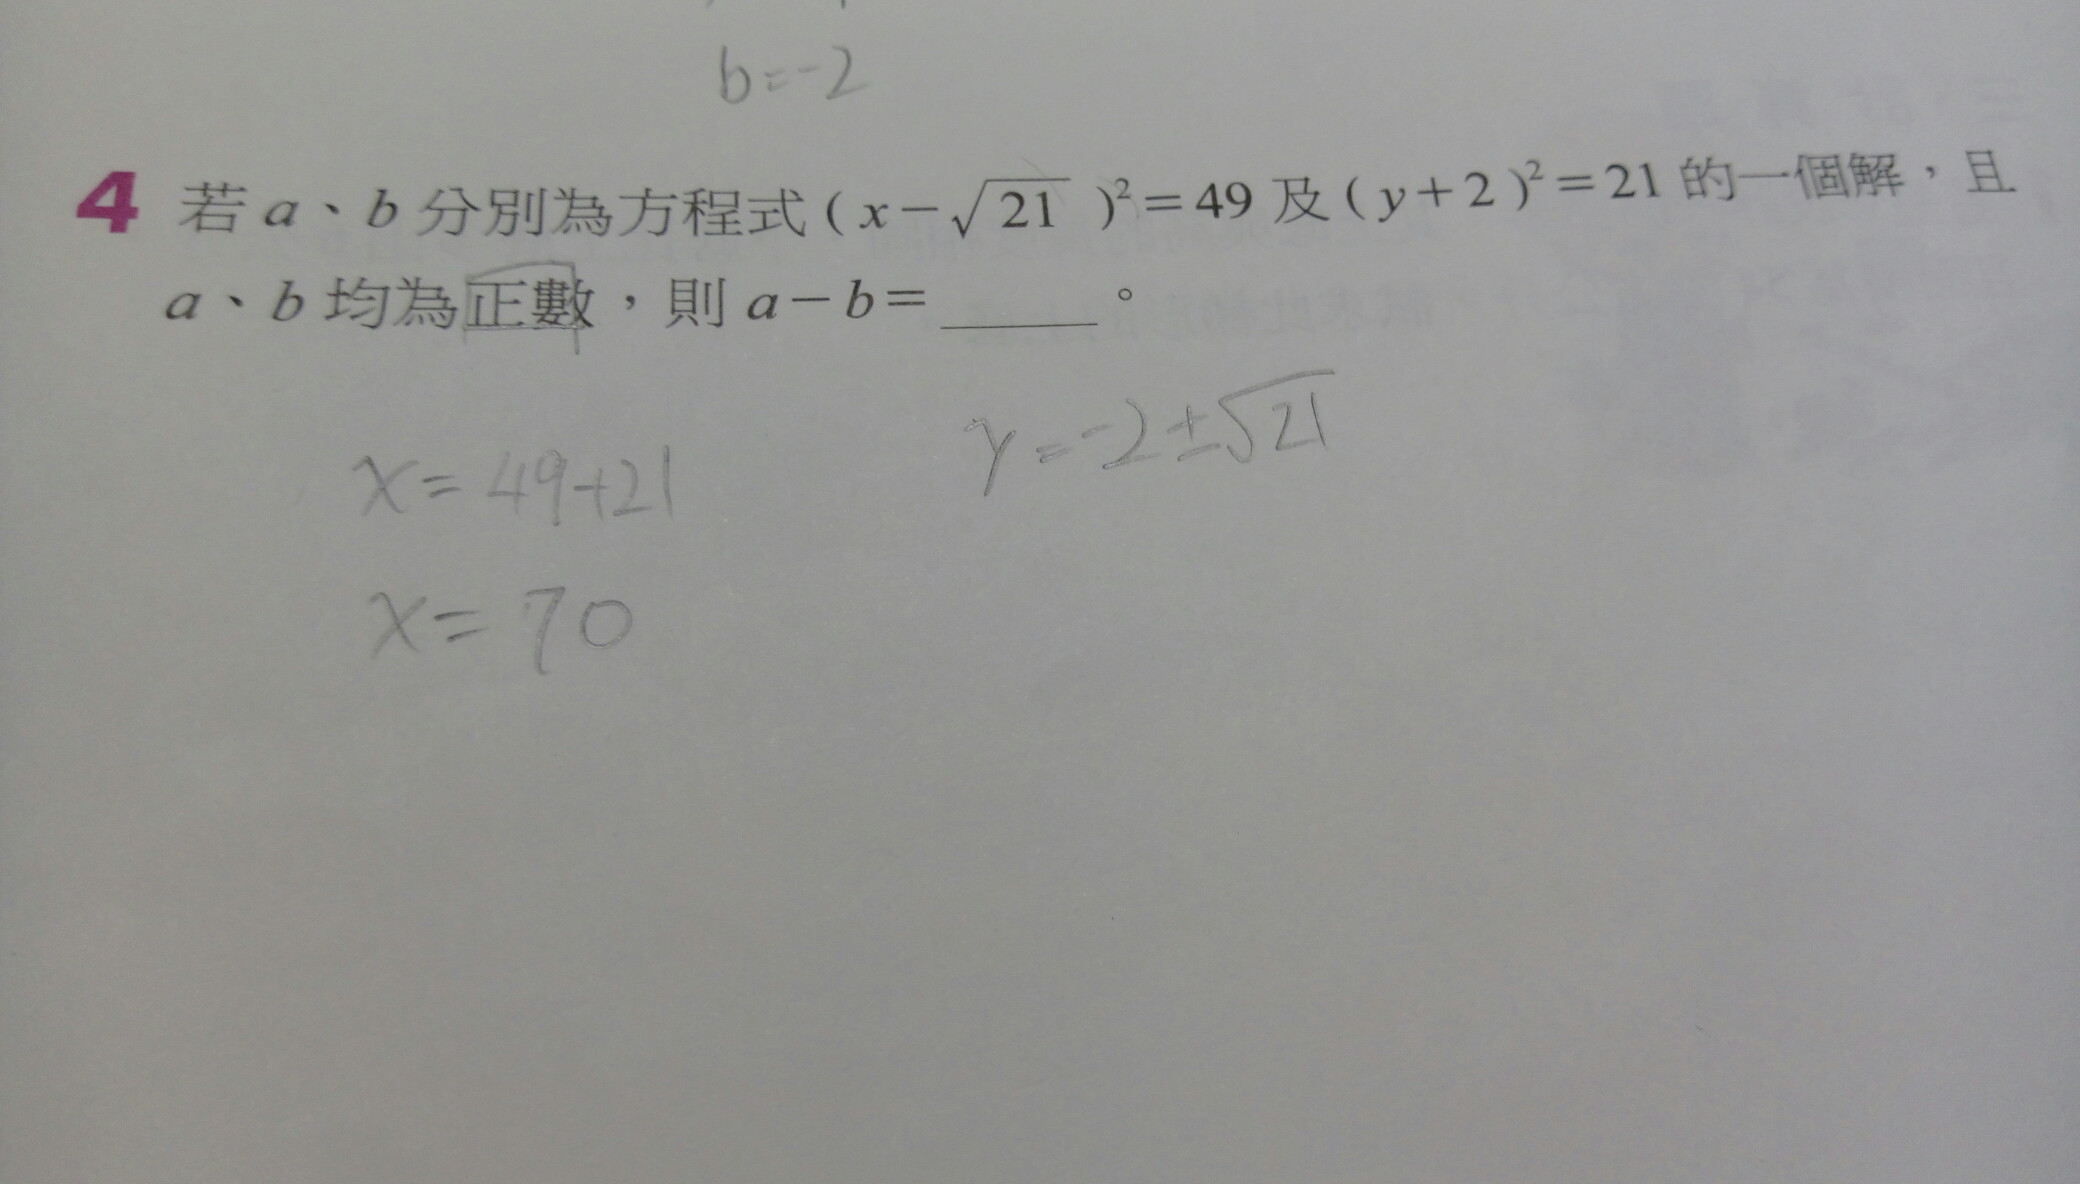 b=-2
4 若 a、b 分別為方程式 ( x－√21 )²＝49 及 ( y＋2 )²＝21 的一個解，且
a、b 均為正數，則 a－b＝_____。
y=-2±√21
x=49+21
x=70